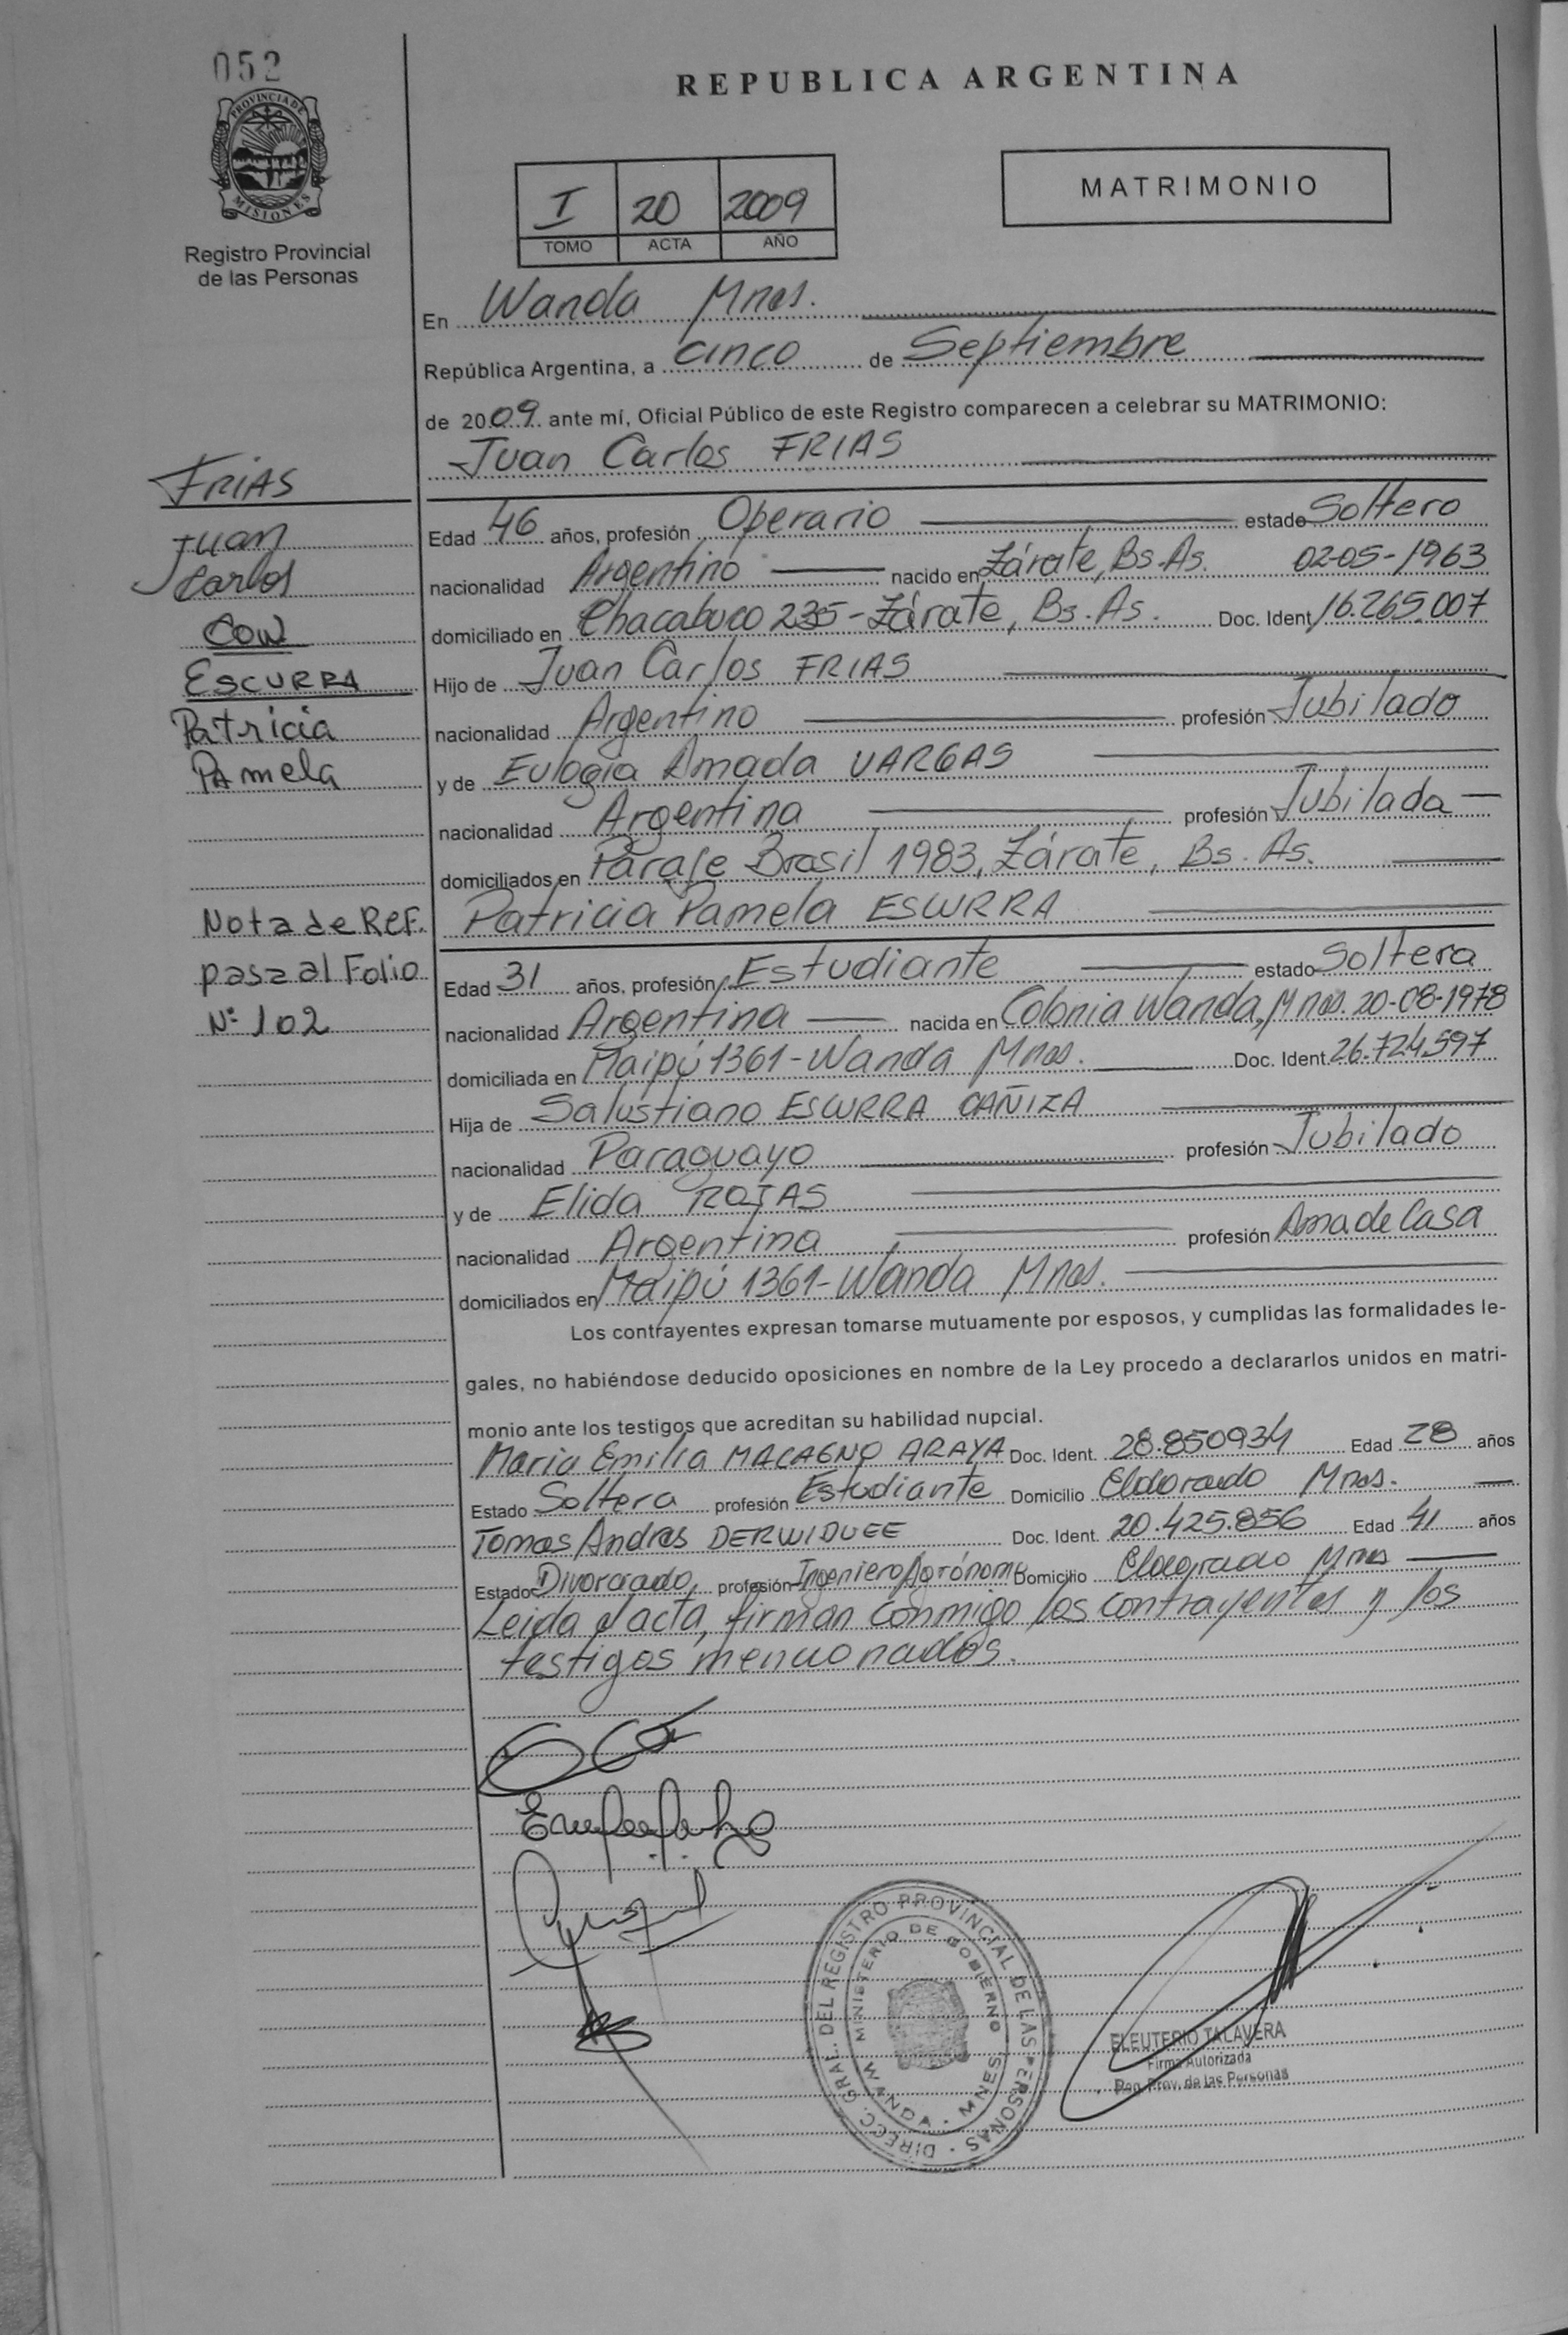 052
PROVINCIA DE
MISIONES
Registro Provincial
de las Personas
REPUBLICA ARGENTINA
I 20 2009
TOMO ACTA AÑO
MATRIMONIO
En Wanda Mnes.
República Argentina, a cinco de Septiembre
de 2009 ante mí, Oficial Público de este Registro comparecen a celebrar su MATRIMONIO:
Juan Carlos FRIAS
FRIAS
Juan
Carlos
CON
ESCURRA
Patricia
PAmela
Nota de Ref.
pasa al Folio
Nº 102
Edad 46 años, profesión Operario estado Soltero
nacionalidad Argentino nacido en Zárate, Bs.As. 02-05-1963
domiciliado en Chacabuco 235-Zárate, Bs. As. Doc. Ident 16.265.007
Hijo de Juan Carlos FRIAS
nacionalidad Argentino profesión Jubilado
y de Eulogia Amada VARGAS
nacionalidad Argentina profesión Jubilada
domiciliados en Paraje Brasil 1983, Zárate, Bs. As.
Patricia Pamela ESCURRA
Edad 31 años, profesión Estudiante estado Soltera
nacionalidad Argentina nacida en Colonia Wanda, Mnes. 20-08-1978
domiciliada en Maipú 1361-Wanda Mnes. Doc. Ident. 26.724.597
Hija de Salustiano ESCURRA CAÑIZA
nacionalidad Paraguayo profesión Jubilado
y de Elida ROJAS
nacionalidad Argentina profesión Ama de Casa
domiciliados en Maipú 1361-Wanda Mnes.
Los contrayentes expresan tomarse mutuamente por esposos, y cumplidas las formalidades le-
gales, no habiéndose deducido oposiciones en nombre de la Ley procedo a declararlos unidos en matri-
monio ante los testigos que acreditan su habilidad nupcial.
Maria Emilia MACAGNO ARAYA Doc. Ident. 28.850934 Edad 28 años
Estado Soltera profesión Estudiante Domicilio Eldorado Mnes.
Tomas Andres DERWIDUEE Doc. Ident. 20.425.856 Edad 41 años
Estado Divorciado, profesión Ingeniero Agrónomo Domicilio Eldorado Mnes
Leida el acta, firman conmigo los contrayentes y los
testigos mencionados.
DIRECC. GRAL. DEL REGISTRO PROVINCIAL DE LAS PERSONAS
MINISTERIO DE GOBIERNO
WANDA - MNES
ELEUTERIO TALAVERA
Firma Autorizada
Reg. Prov. de las Personas